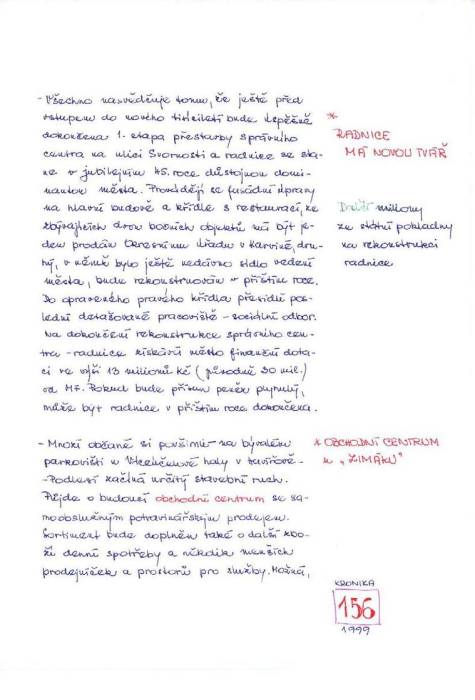 - Všechno nasvědčuje tomu, že ještě před
vstupem do nového tisíciletí bude úspěšně
dokončena 1. etapa přestavby správního
centra na ulici Svornosti a radnice se sta-
ne v jubilejním 45. roce důstojnou domi-
nantou města. Provádějí se fasádní úpravy
na hlavní budově a křídle s restaurací, ze
zbývajících dvou bočních objektů má být je-
den prodán Okresnímu úřadu v Karviné, dru-
hý, v němž bylo ještě nedávno sídlo vedení
města, bude rekonstruován v příštím roce.
Do opraveného pravého křídla přesídlí pos-
lední detašované pracoviště - sociální odbor.
Na dokončení rekonstrukce správního cen-
tra - radnice získává město finanční dota-
ci ve výši 13 milionů Kč (původně 30 mil.)
od MF. Pokud bude přísun peněz plynulý,
může být radnice v příštím roce dokončena.
* RADNICE
MÁ NOVOU TVÁŘ
Další miliony
ze státní pokladny
na rekonstrukci
radnice
- Mnozí občané si povšimli na bývalém
parkovišti u Víceúčelové haly v Havířově-
-Podlesí začíná určitý stavební ruch.
Půjde o budoucí obchodní centrum se sa-
moobslužným potravinářským prodejem.
Sortiment bude doplněn také o další zbo-
ží denní spotřeby a několik menších
prodejniček a prostorů pro služby. Možná,
* OBCHODNÍ CENTRUM
u „ZIMÁKU"
KRONIKA
156
1999